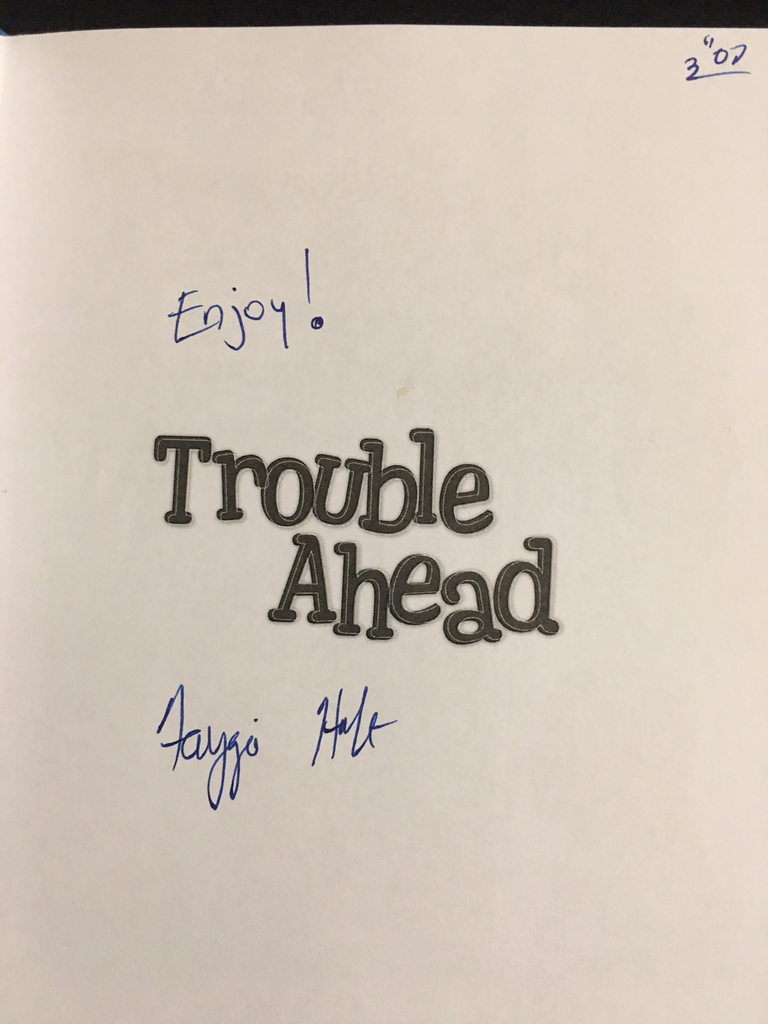 בס"ד
Enjoy!
Trouble
Ahead
Faygi Holt